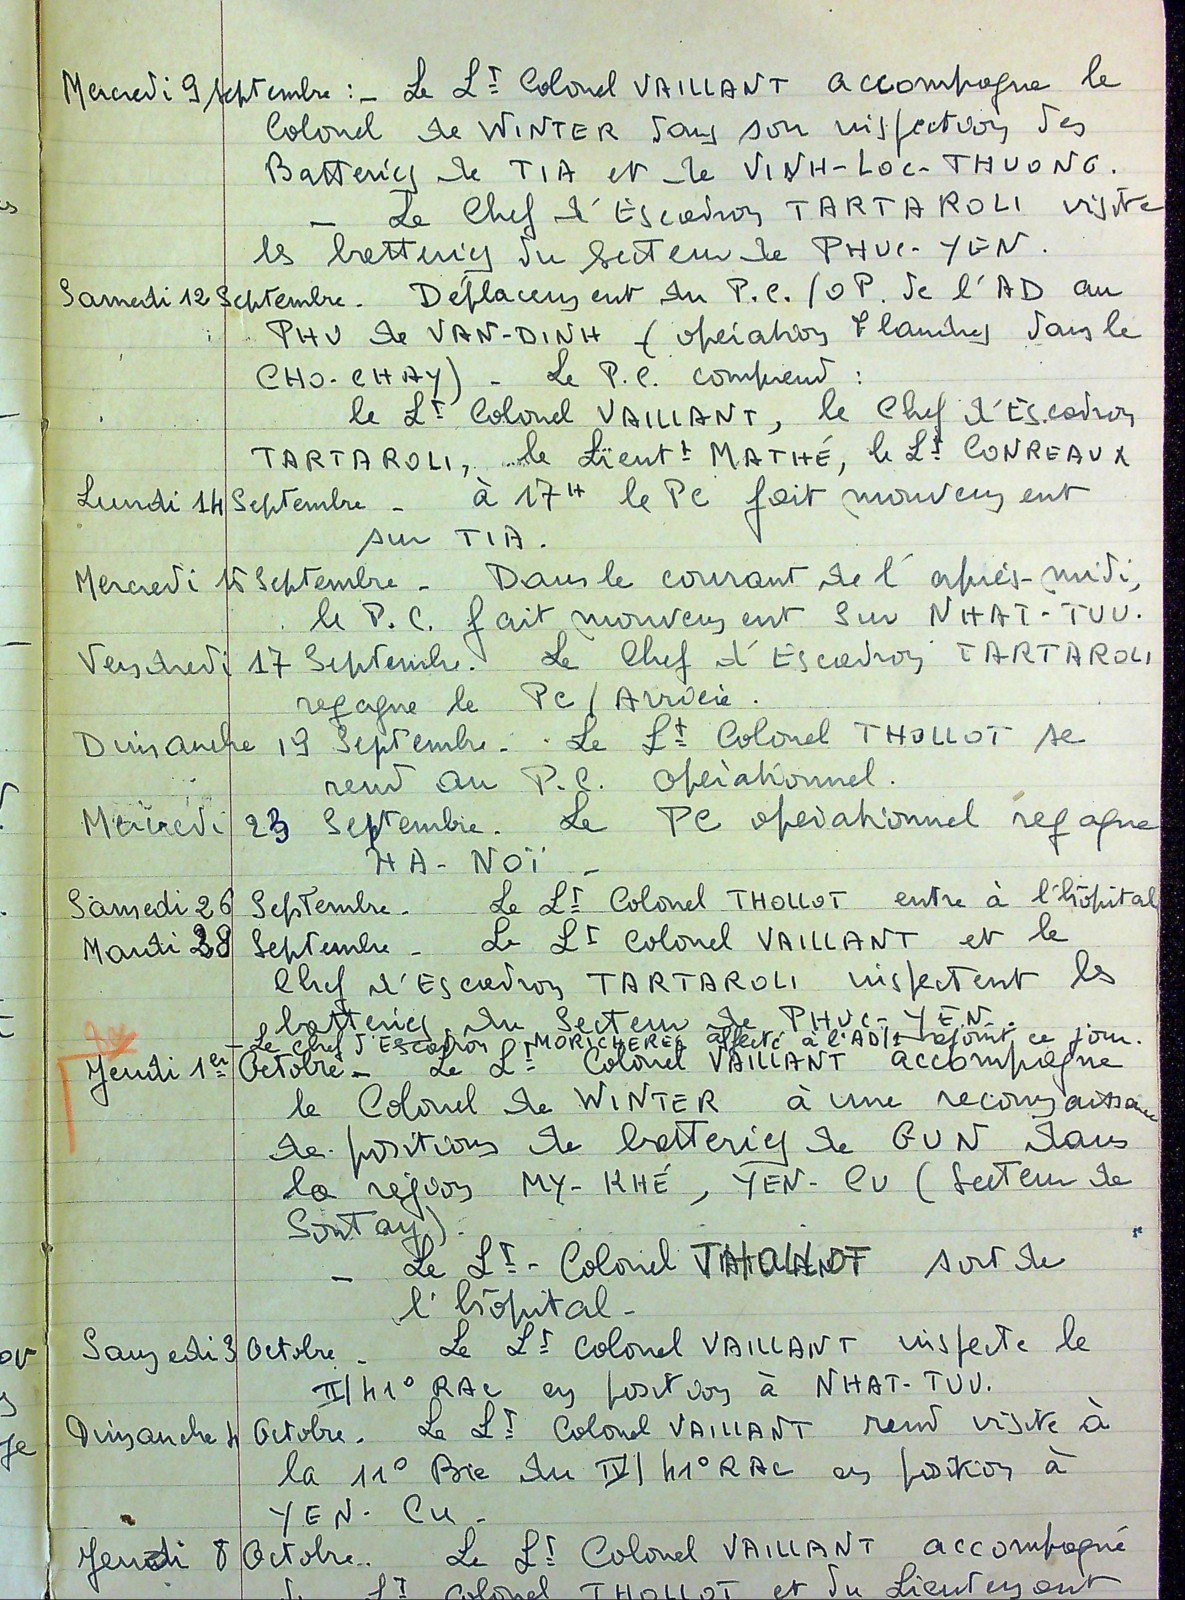 Mercredi 9 Septembre : - Le Lt Colonel VAILLANT accompagne le
Colonel de WINTER dans son inspection des
Batteries de TIA et de VINH-LOC-THUONG.
- Le Chef d'Escadron TARTAROLI visite
les batteries du Secteur de PHUC-YEN.
Samedi 12 Septembre. Déplacement du P.C./OP. de l'AD au
PHU de VAN-DINH - (opération Flandres dans le
CHO-CHAY) - Le P.C. comprend :
le Lt Colonel VAILLANT, le Chef d'Escadron
TARTAROLI, le Lieutt MATHÉ, le Lt CONREAUX
Lundi 14 Septembre - à 17H le PC fait mouvement
sur TIA.
Mercredi 16 Septembre - Dans le courant de l'après-midi,
le P.C. fait mouvement sur NHAT-TUU.
Vendredi 17 Septembre. Le Chef d'Escadron TARTAROLI
regagne le PC/Arrière.
Dimanche 19 Septembre - Le Lt Colonel THOLLOT se
rend au P.C. opérationnel.
Mercredi 23 Septembre. Le PC opérationnel regagne
HA-NOÏ -
Samedi 26 Septembre. Le Lt Colonel THOLLOT entre à l'hôpital
Mardi 28 Septembre - Le Lt Colonel VAILLANT et le
Chef d'Escadron TARTAROLI inspectent les
batteries du Secteur de PHUC-YEN.
- Le Chef d'Escadron MORICHERE affecté à l'AD/2 rejoint ce jour.
Jeudi 1er Octobre - Le Lt Colonel VAILLANT accompagne
le Colonel de WINTER à une reconnaissance
de positions de batteries de GUN dans
la région MY-KHÉ, YEN-CU (Secteur de
Sontay).
- Le Lt-Colonel THOLLOT sort de
l'hôpital -
Samedi 3 Octobre - Le Lt Colonel VAILLANT inspecte le
II/41° RAC en position à NHAT-TUU.
Dimanche 4 Octobre. Le Lt Colonel VAILLANT rend visite à
la 11° Bie du IV/41° RAC en position à
YEN-CU -
Jeudi 8 Octobre. Le Lt Colonel VAILLANT accompagné
du Lt Colonel THOLLOT et du Lieutenant